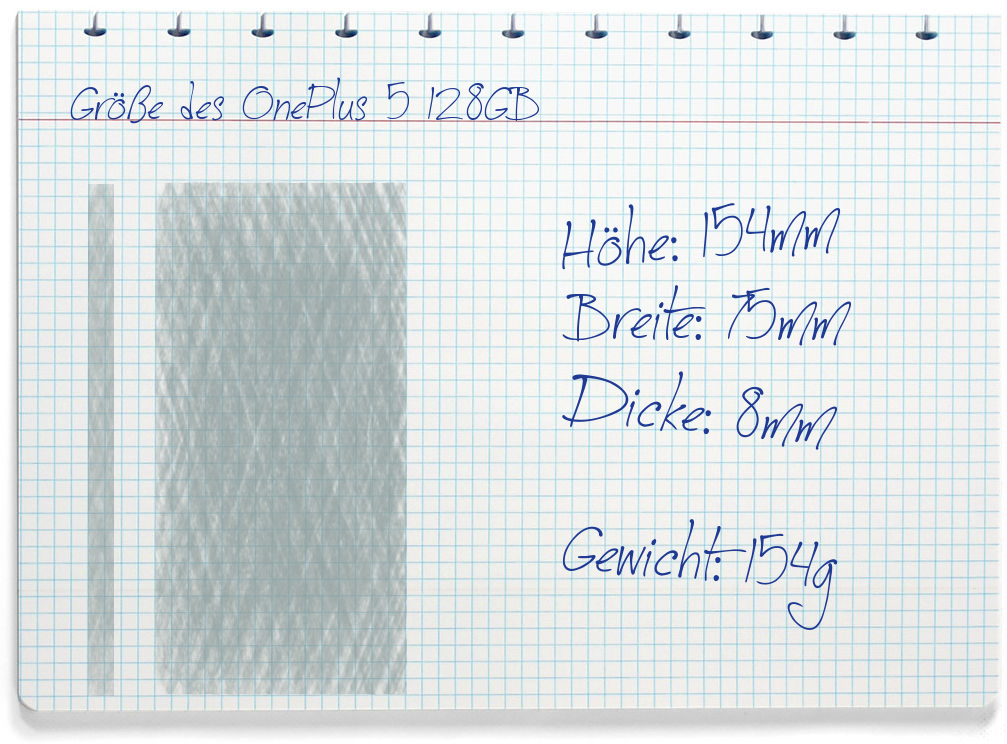 Größe des OnePlus 5 128GB
Höhe: 154mm
Breite: 75mm
Dicke: 8mm
Gewicht: 154g